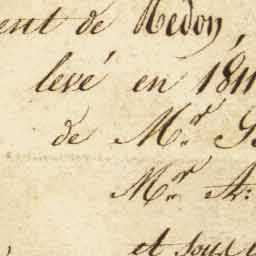 ent de Redon,
levé en 1811
de Mr. G
Mr. A:
et sous